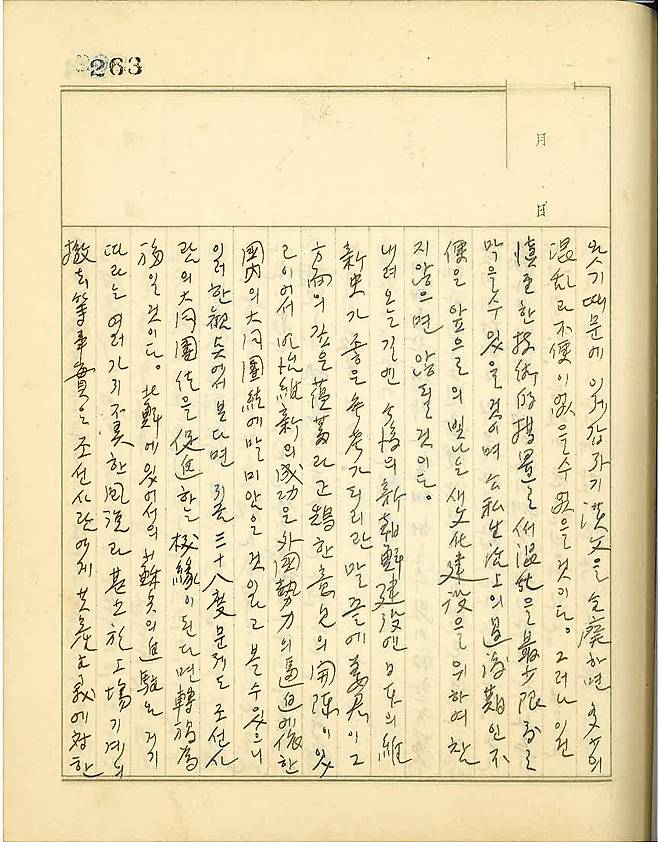 263
月
日
왓기 때문에 이제 갑자기 漢文을 全廢하면 多少의
混乱과 不便이 없을 수 없을 것이다. 그러나 이것
愼重한 技術的 措置로서 混乱을 最少限度로
막을 수 있을 것이며 公私生活上의 過渡期인 不
便을 앞으로의 빛나는 새 文化建設을 위하여 참
지 않으면 않 될 것이다.
내려오는 길엔 今後의 新朝鮮建設엔 日本의 維
新史가 좋은 參考가 되리란 말 끝에 姜君이 그
方面의 깊은 蘊蓄과 正鵠한 意見의 開陳이 있
고 이어서 明治維新의 成功은 外國勢力의 逼迫에 依한
國內의 大同團結에 말미암은 것이라고 볼 수 있으니
이러한 觀點에서 본다면 지금 三十八度 문제도 조선사
람의 大同團結을 促進하는 機緣이 된다면 轉禍爲
福일 것이다. 北鮮에 있어서의 蘇兵의 進駐는 거기
따라는 여러가지 不美한 風說과 甚至於 工場기계의
撤去 等 事實은 조선사람에게 共産主義에 対한